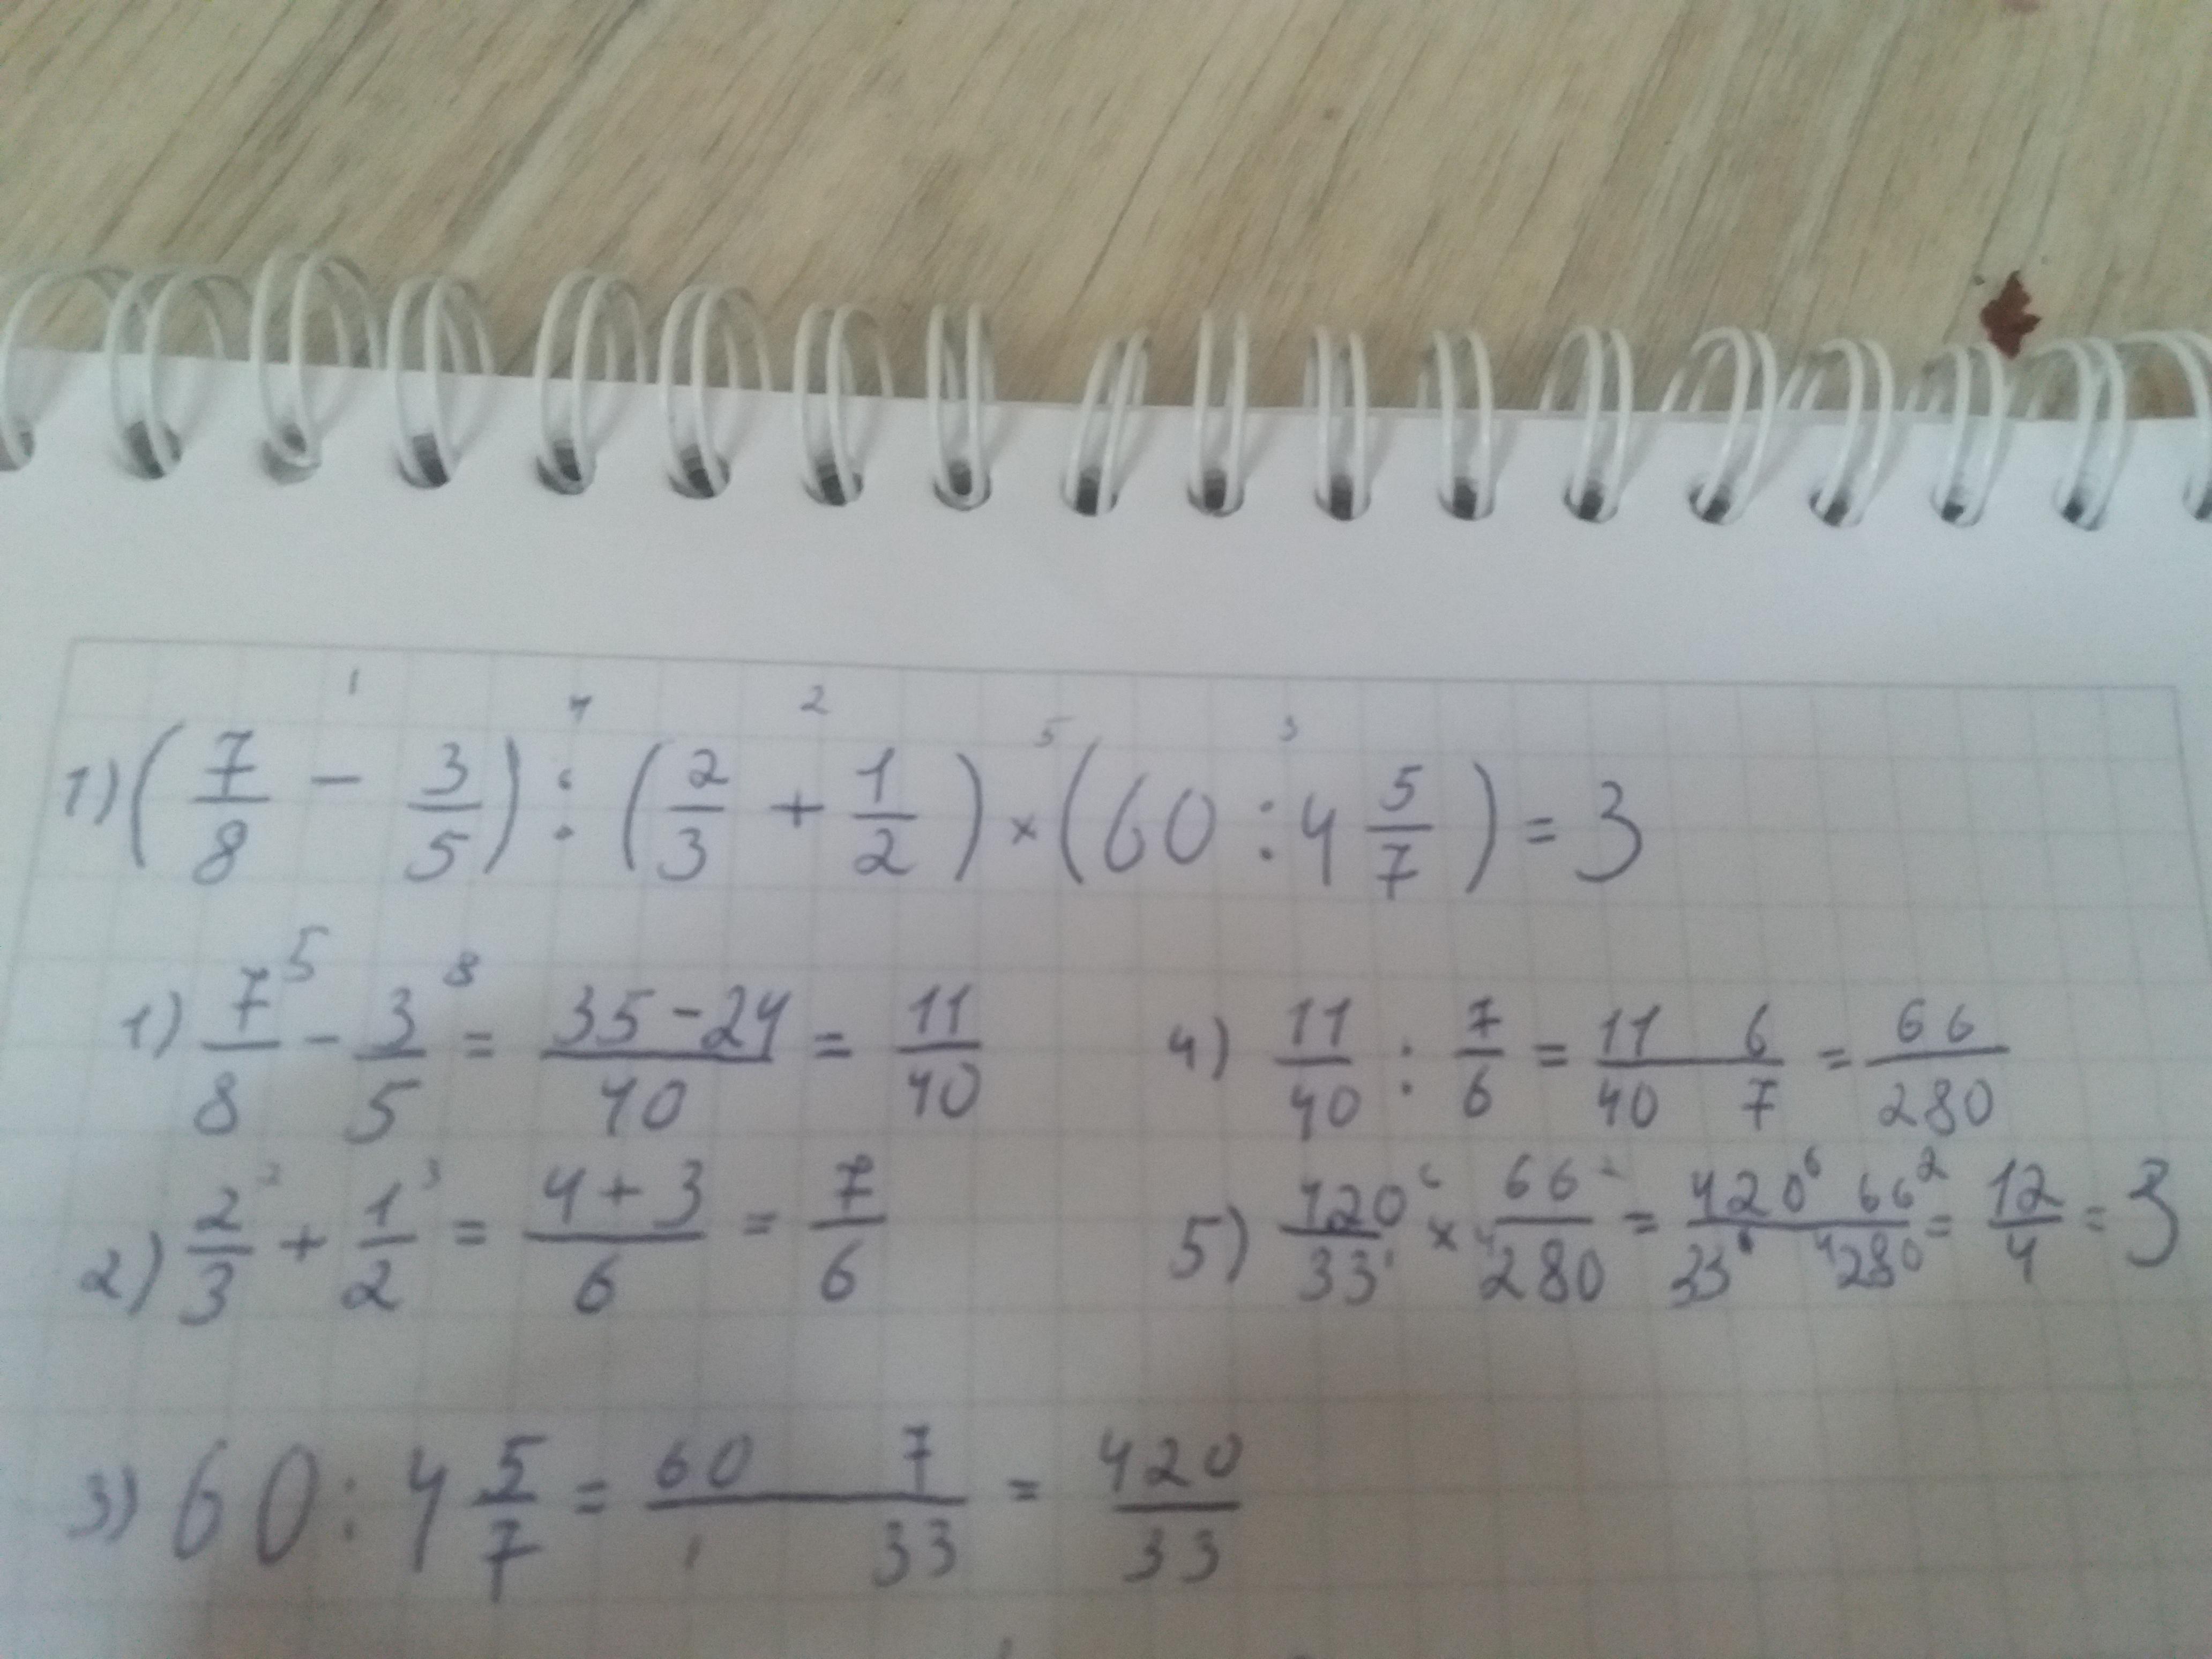 1) (7/8 - 3/5) : (2/3 + 1/2) × (60 : 4 5/7) = 3
1 4 2 5 3
1) 7/8 ⁵ - 3/5 ⁸ = 35-24/40 = 11/40
4) 11/40 : 7/6 = 11 6/40 7 = 66/280
2) 2/3 ² + 1/2 ³ = 4+3/6 = 7/6
5) 420⁶/33¹ × 66²/⁴280 = 420⁶ 66²/33 ⁴280 = 12/4 = 3
3) 60 : 4 5/7 = 60 7/1 33 = 420/33